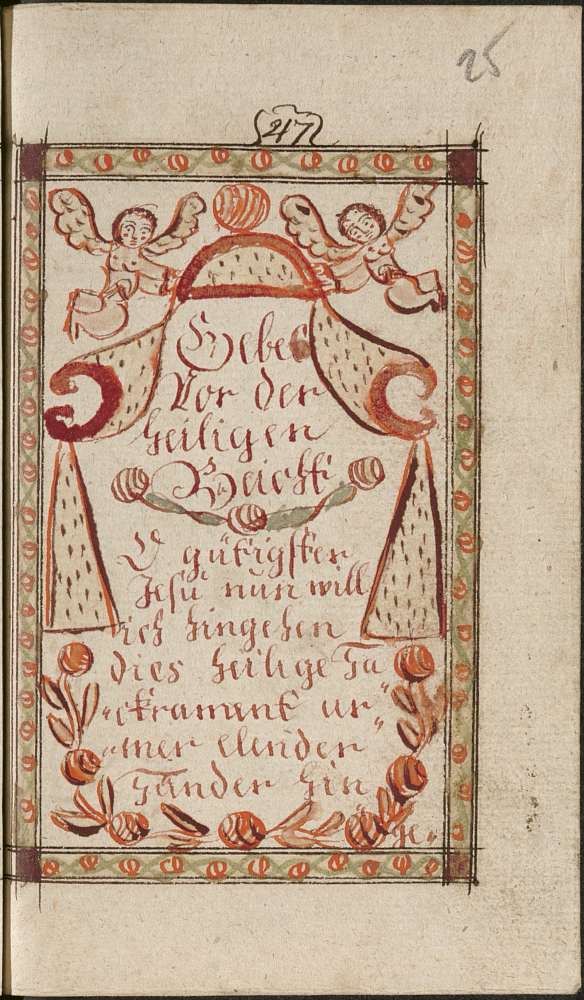 25
47
Gebet
Vor der
heiligen
Beicht
O gütigster
Jesu nun will
ich hingehen
dies heilige Sa„
„ckrament ar„
„mer elender
Sünder hin
ge„